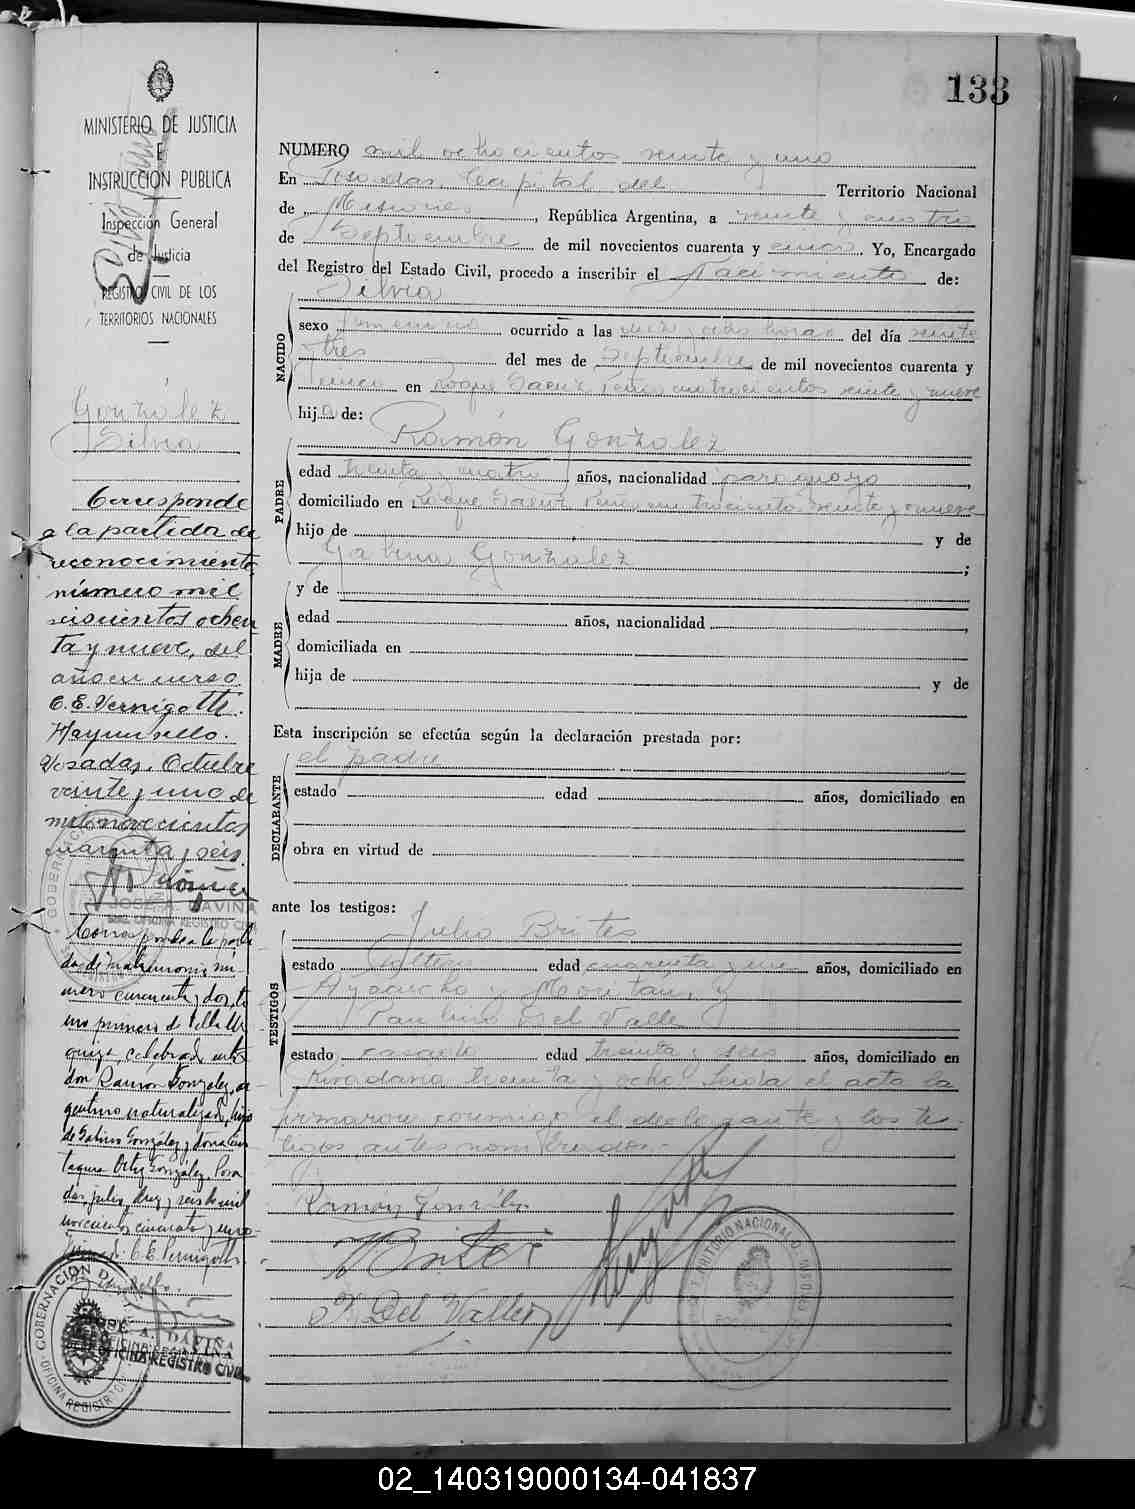 133
MINISTERIO DE JUSTICIA
E
INSTRUCCIÓN PUBLICA
Inspección General
de Justicia
REGISTRO CIVIL DE LOS
TERRITORIOS NACIONALES
Gonzalez
Silvia
Corresponde
a la partida de
reconocimiento
número mil
seiscientos ochen
ta y nueve, del
año en curso
C. E. Vernigotti.
Hay un sello.
Posadas, Octubre
veinte y uno de
mil novecientos
cuarenta y seis.
JOSE A. DAVIÑA
OFICINA REGISTRO CIVIL
Corresponde a la parti
da de matrimonio nú-
mero cincuenta y dos, to
mo primero de Villa Ur
quiza, celebrado entre
don Ramón González, ar
gentino naturalizado, hijo
de Galina González y doña Can
Ortiz González. Posa
das, julio, diez y seis de mil
novecientos cincuenta y uno
C. E. Vernigotti
Hay un sello.
GOBERNACION DE
OFICINA REGISTRO
JOSE A. DAVIÑA
OFICINA REGISTRO CIVIL
NUMERO mil ochocientos veinte y uno
En Posadas Capital del Territorio Nacional
de Misiones, República Argentina, a veinte y cuatro
de Septiembre de mil novecientos cuarenta y cinco. Yo, Encargado
del Registro del Estado Civil, procedo a inscribir el Nacimiento de:
NACIDO
Silvia
sexo femenino ocurrido a las diez y ocho horas del día veinte
y tres del mes de Septiembre de mil novecientos cuarenta y
cinco en Roque Saenz Peña cuatrocientos veinte y nueve
hija de:
PADRE
Ramón Gonzalez
edad treinta y cuatro años, nacionalidad paraguayo,
domiciliado en Roque Saenz Peña cuatrocientos veinte y nueve
hijo de y de
Galina Gonzalez;
MADRE
y de
edad años, nacionalidad,
domiciliada en
hija de y de
Esta inscripción se efectúa según la declaración prestada por:
DECLARANTE
el padre
estado edad años, domiciliado en
obra en virtud de
ante los testigos:
TESTIGOS
Julio Brites
estado soltero edad cuarenta y un años, domiciliado en
Ayacucho y y
Paulino Del Valle
estado casado edad treinta y seis años, domiciliado en
Rivadavia treinta y ocho Leida el acta la
firmaron conmigo el declarante y los tes-
tigos antes nombrados.-
Ramón González
P. Del Valle
02_140319000134-041837